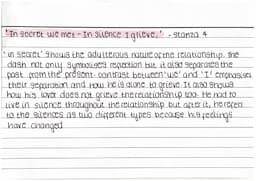 "In secret we met - In silence I grieve," - stanza 4
'in secret' shows the adulterous nature of the relationship. The
dash not only symbolises reflection but it also separates the
past from the present. contrast between 'we' and 'I' emphasises
their separation and how he is alone to grieve. It also shows
how his lover does not grieve the relationship too. He had to
live in silence throughout the relationship but after it, he refers
to the silences as two different types because his feelings
have changed